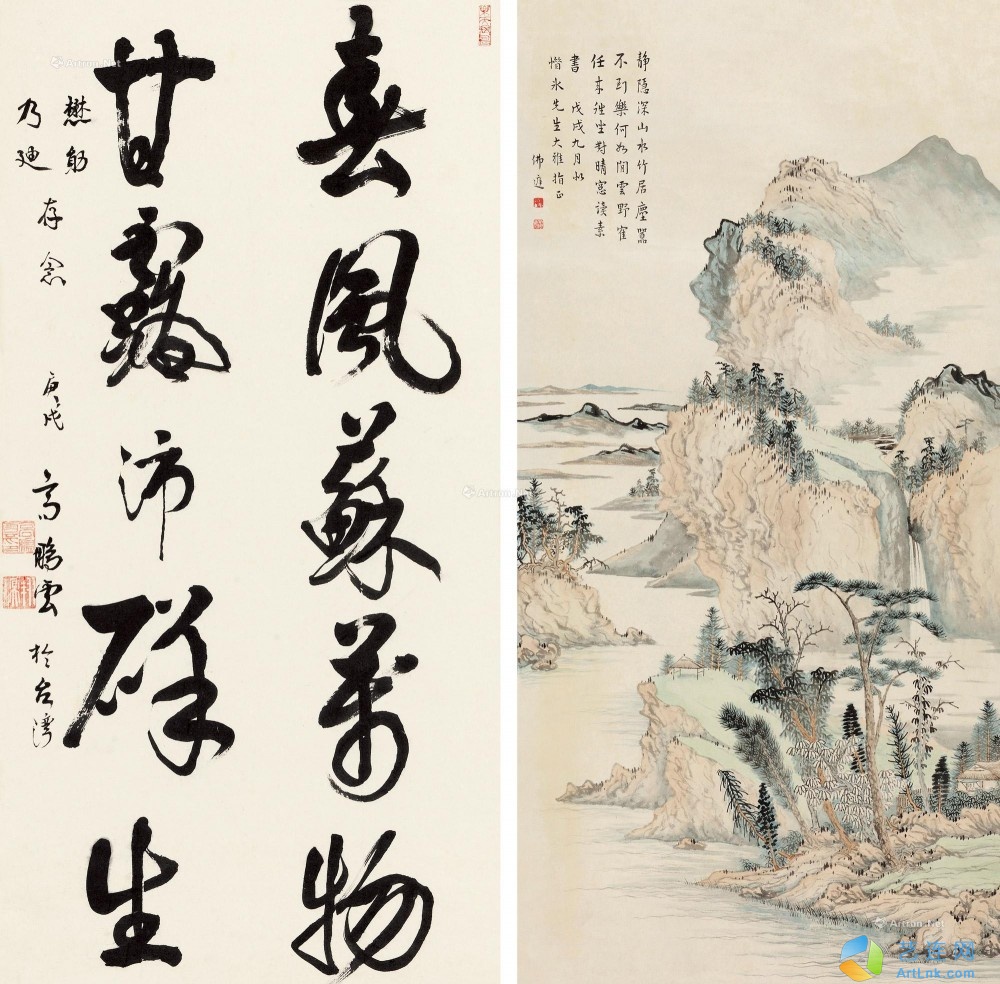 春風蘇萬物
甘露沛群生
懋躬
乃廸 存念 庚戌 高鵬雲 於台灣
靜隱深山水竹居塵囂
不到樂何如閒雲野寉
任來往坐對晴窓讀素
書 戊戌九月似
惜氷先生大雅指正
佛庭
Artron.Net
Artron.Net
Artron.Net
艺连网
ArtLnk.com